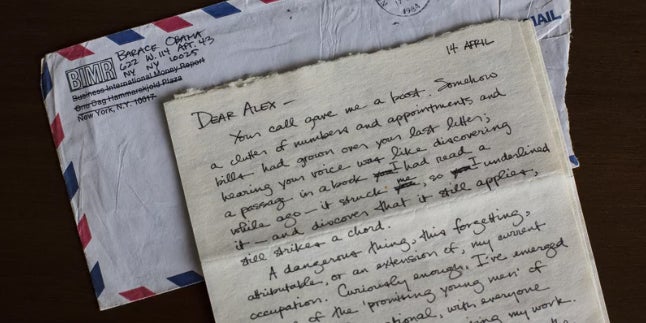 BARACK OBAMA
622 W. 114 APT. 43
NY NY 10025
BIMR
Business International Money Report
One Dag Hammarskjold Plaza
New York, N.Y. 10017
1984
MAIL
14 APRIL
DEAR ALEX –
Your call gave me a boost. Somehow
a clutter of numbers and appointments and
bills had grown over your last letter;
hearing your voice was like discovering
a passage in a book you I had read a
while ago – it struck me, so you I underlined
it – and discover that it still applies,
still strikes a chord.
A dangerous thing, this forgetting,
attributable, or an extension of, my current
occupation. Curiously enough, I've emerged
of the "promising young men" of
ational, with everyone
ing my work.